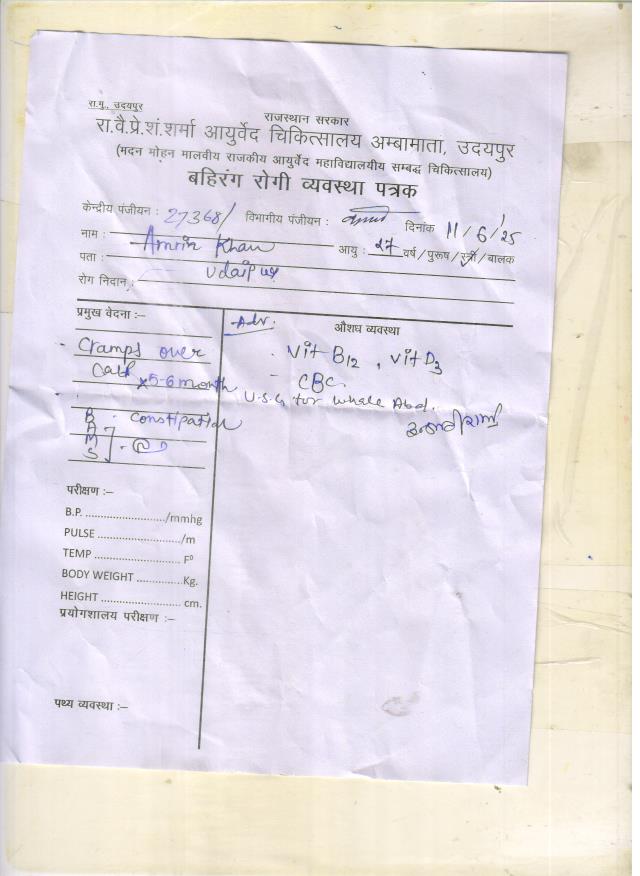 रा.मु., उदयपुर
राजस्थान सरकार
रा.वै.प्रे.शं.शर्मा आयुर्वेद चिकित्सालय अम्बामाता, उदयपुर
(मदन मोहन मालवीय राजकीय आयुर्वेद महाविद्यालयीय सम्बद्ध चिकित्सालय)
बहिरंग रोगी व्यवस्था पत्रक
केन्द्रीय पंजीयन : 27368/ विभागीय पंजीयन : दिनांक 11/6/25
नाम : Amrin Khan आयु : 27 वर्ष/पुरूष/स्त्री/बालक
पता : Udaipur
रोग निदान :
प्रमुख वेदना :– Adv. औशघ व्यवस्था
- Cramps over - Vit B12 , Vit D3
Calf x 5-6 month - CBC
U.S.G for Whole Abd.
B - constipation
A
M
S
परीक्षण :–
B.P. ........................../mmhg
PULSE ........................../m
TEMP .......................... F⁰
BODY WEIGHT ..............Kg.
HEIGHT ........................ cm.
प्रयोगशालय परीक्षण :–
पथ्य व्यवस्था :–